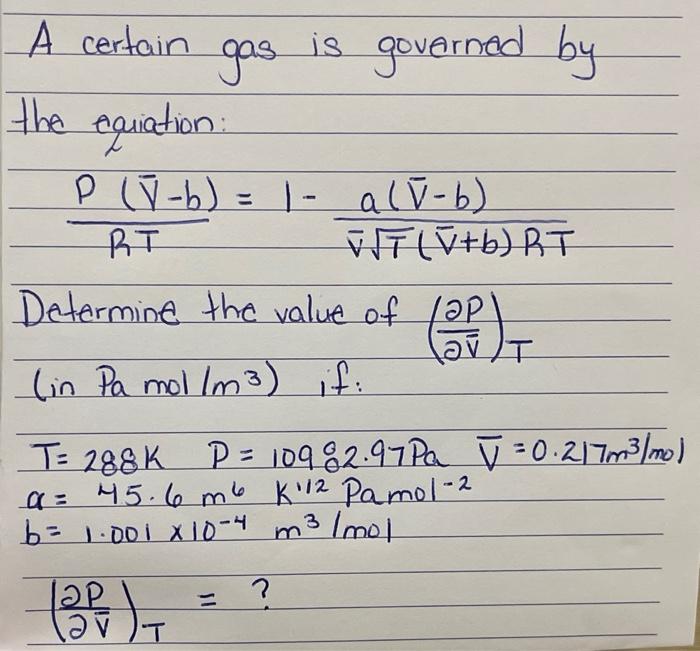 A certain gas is governed by
the equiation:
P (V̄-b) / RT = 1 - a(V̄-b) / V̄√T(V̄+b) RT
Determine the value of (∂P/∂V̄)T
(in Pa mol/m³) if:
T= 288K P= 10982.97Pa V̄ =0.217m³/mol
a= 45.6 m⁶ K¹/² Pa mol⁻²
b= 1.001 x10⁻⁴ m³/mol
(∂P/∂V̄)T = ?